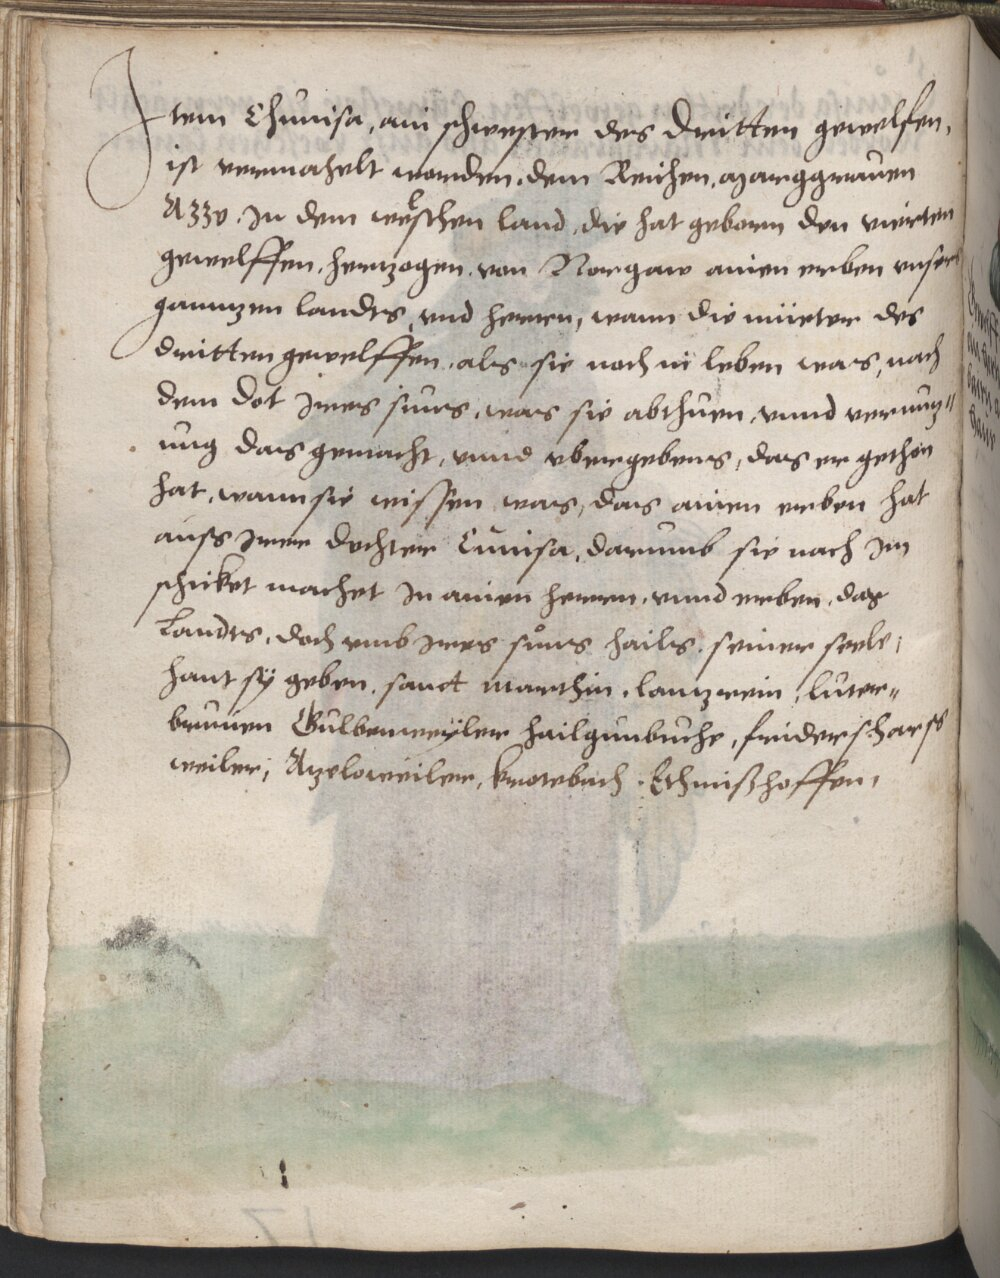 Item Chunisa, ain schwester des dritten gewelfen,
ist vermahelt worden, dem Reichen, marggrauen
Azzo. In dem welschen land, die hat geborn den vierten
gewelffen, hertzogen, von Norgaw ainen erben vnsers
ganntzen landts, vnd herren, wann die muetter des
dritten gewelffen, als sie noch in leben was, nach
dem dot Ires suns, was sie abthuen, vnnd vernutz=
ung das gemacht, vnnd vbergebens, das er gethon
hat, wann sie wissen was, das ainen erben hat
auss Irer dochter Cunisa, darumb sie nach Im
schicket machet In ainen herren, vnnd erben, das
Landts, doch vmb Ires suns hails, seiner seele,
hant sy geben, sanct Marthin, lantzrein, luter=
brunnen Gulbenweyler hailgunbuche, friderscharss
weiler, Azeloweiler, krotebach, Ethmißhoffen,